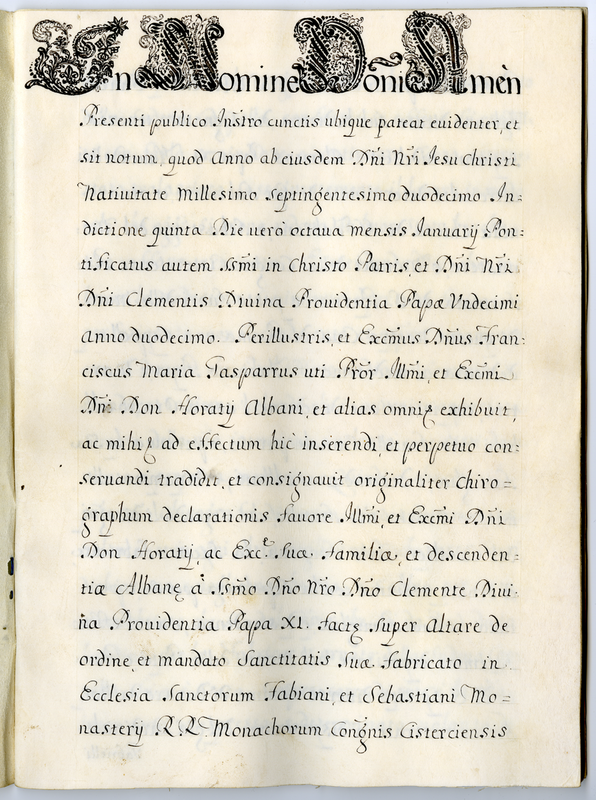 In Nomine Dōni Amen
Presenti publico Instro cunctis ubique pateat euidenter, et
sit notum, quod Anno ab eiusdem Dñi Nr̃i Iesu Christi
Natiuitate Millesimo Septingentesimo duodecimo In=
dictione quinta Die uerò octaua mensis Ianuarij Pon=
tificatus autem Ssm̃i in Christo Patris, et Dñi Nr̃i
Dñi Clementis Diuina Prouidentia Papæ Vndecimi
Anno duodecimo. Perillustris, et Excm̃us Dñus Fran=
ciscus Maria Gasparrus uti Pr̃or Illm̃i, et Excm̃i
Dñi Don Horatij Albani, et alias omni exhibuit,
ac mihi ad effectum hic inserendi, et perpetuo con=
seruandi tradidit, et consignauit originaliter Chiro=
graphum declarationis fauore Illm̃i, et Excm̃i Dñi
Don Horatij, ac Exc.ᵉ Suæ Familiæ, et descenden=
tiæ Albanę à Ssm̃o Dño Nr̃o Dño Clemente Diui=
na Prouidentia Papa XI. factę super Altare de
ordine, et mandato Sanctitatis Suæ fabricato in
Ecclesia Sanctorum Fabiani, et Sebastiani Mo=
nasterij R.R. Monachorum Congñis Cisterciensis